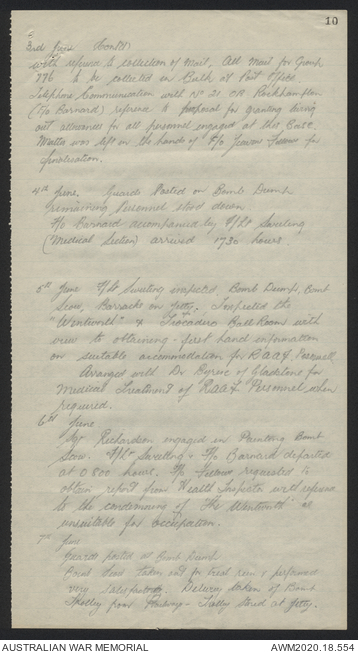 10
3rd June (Contd)
with reference to collection of Mail, All Mail for Group
776 to be collected in Bulk at Post Office.
Telephone Communication with No 21 O.B. Rockhampton
(F/O Barnard) reference to proposal for granting living
out allowances for all personnel engaged at this Base.
Matter was left in the hands of F/O for
finalisation.
4th June. Guards Posted on Bomb Dump
remaining Personnel stood down
F/O Barnard accompanied by F/Lt
(Medical Section) arrived 1730 hours
5th June F/Lt inspected Bomb Dump, Bomb
Scow, Barracks on Jetty. Inspected the
"Wentworth" & Trocadero Ball Room with
view to obtaining first hand information
on suitable accommodation for RAAF Personnel
Arranged with Dr of Gladstone for
Medical Treatment of RAAF Personnel when
required.
6th June
Richardson engaged in Painting Bomb
Scow. F/Lt & F/O Barnard departed
at 0800 hours. F/O requested to
obtain report from Health Inspector with reference
to the condemning of The Wentworth as
unsuitable for occupation.
7th June
Guards posted at Bomb Dump
Bomb Scow taken out for trial run & performed
very satisfactorily. Delivery taken of Bomb
Trolley from Railway - Trolley stored at Jetty.
AUSTRALIAN WAR MEMORIAL
AWM2020.18.554